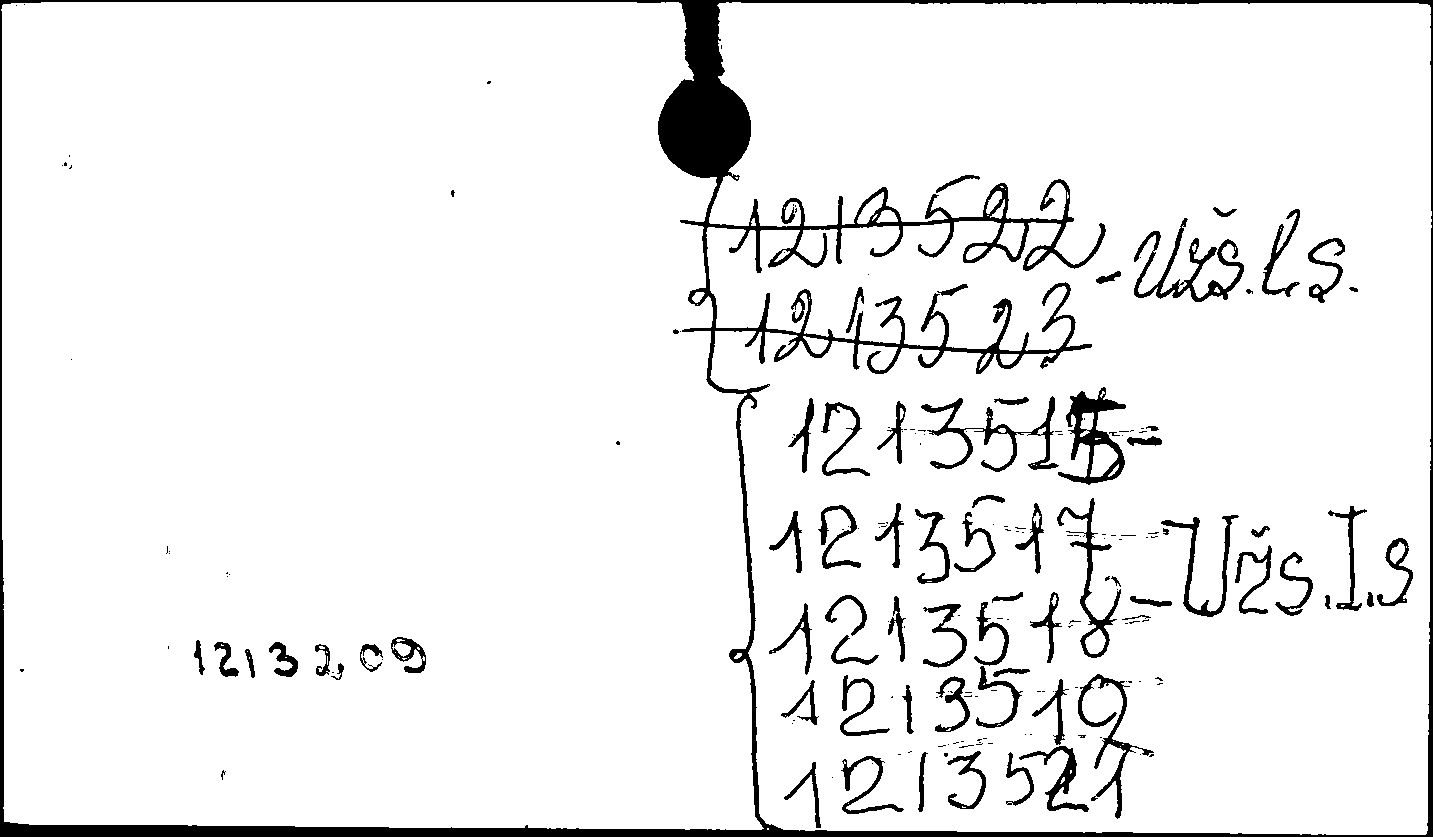 1213522
- Užs. l. s.
1213523
1213515 -
1213517
- Užs. I. s
1213518
1213519
1213521
1213209